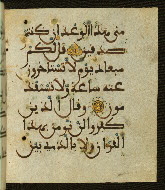 متى هذا الوعد ان كنتم
صدقين قل لكم
ميعاد يوم لا تستخرون
عنه ساعة ولا تستقد
مون وقال الذين
كفروا لن نومن بهذا
القران ولا بالذي بين